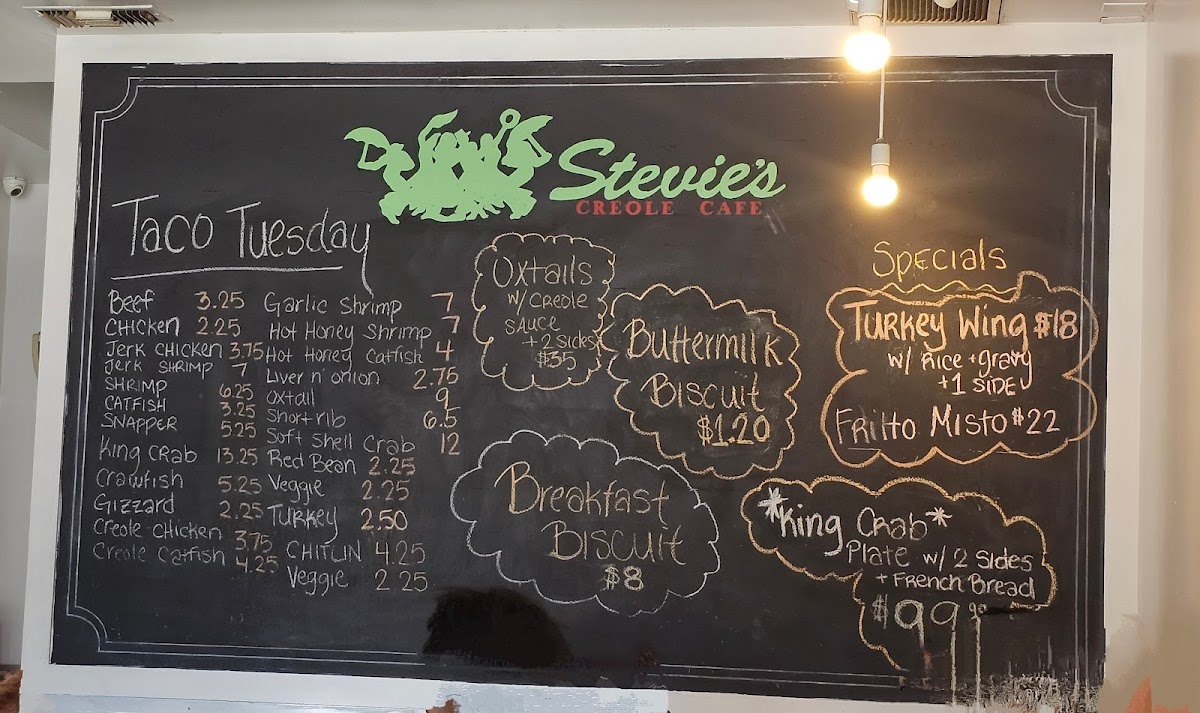 Stevie's
CREOLE CAFE
Taco Tuesday
Beef 3.25
CHICKEN 2.25
Jerk CHICKEN 3.75
Jerk SHRIMP 7
SHRIMP 6.25
CATFISH 3.25
SNAPPER 5.25
King CRAB 13.25
Crawfish 5.25
Gizzard 2.25
Creole Chicken 3.75
Creole Catfish 4.25
Garlic Shrimp 7
Hot Honey Shrimp 7
Hot Honey Catfish 4
Liver n' onion 2.75
Oxtail 9
Short rib 6.5
Soft Shell Crab 12
Red Bean 2.25
Veggie 2.25
TURKEY 2.50
CHITLIN 4.25
Veggie 2.25
Oxtails
w/ CREOLE
SAUCE
+ 2 Sides
$35
Buttermilk
Biscuit
$1.20
Breakfast
Biscuit
$8
Specials
Turkey Wing $18
w/ Rice + gravy
+ 1 SIDE
Fritto Misto $22
*King Crab*
Plate w/ 2 Sides
+ French Bread
$99.99